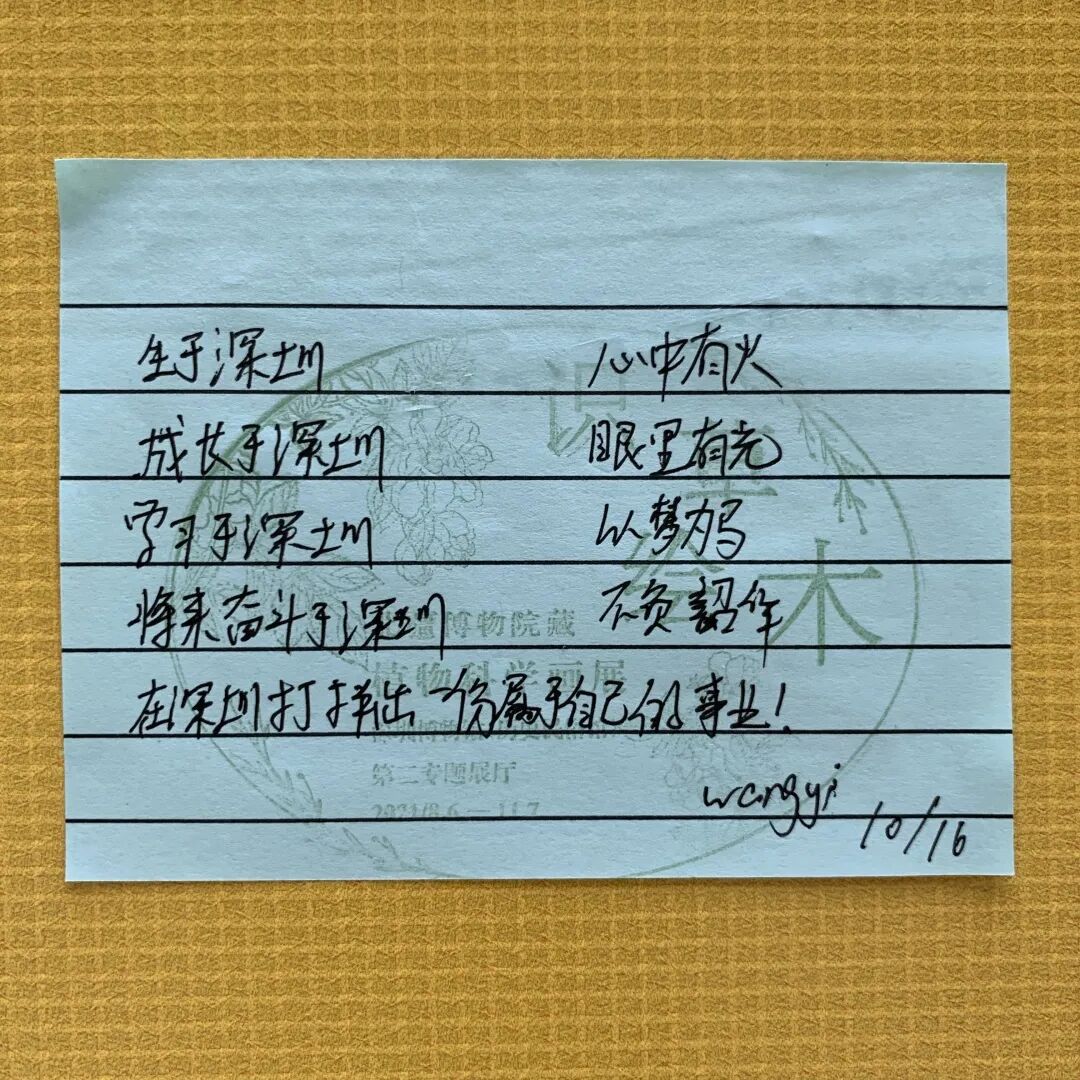 生于深圳 心中有火
成长于深圳 眼里有光
学习于深圳 以梦为马
将来奋斗于深圳 不负韶华
在深圳打拼出一份属于自己的事业！
wangyi
10/16
识
草
木
博物院藏
植物科学画展
第二专题展厅
2021/8.6—11.7